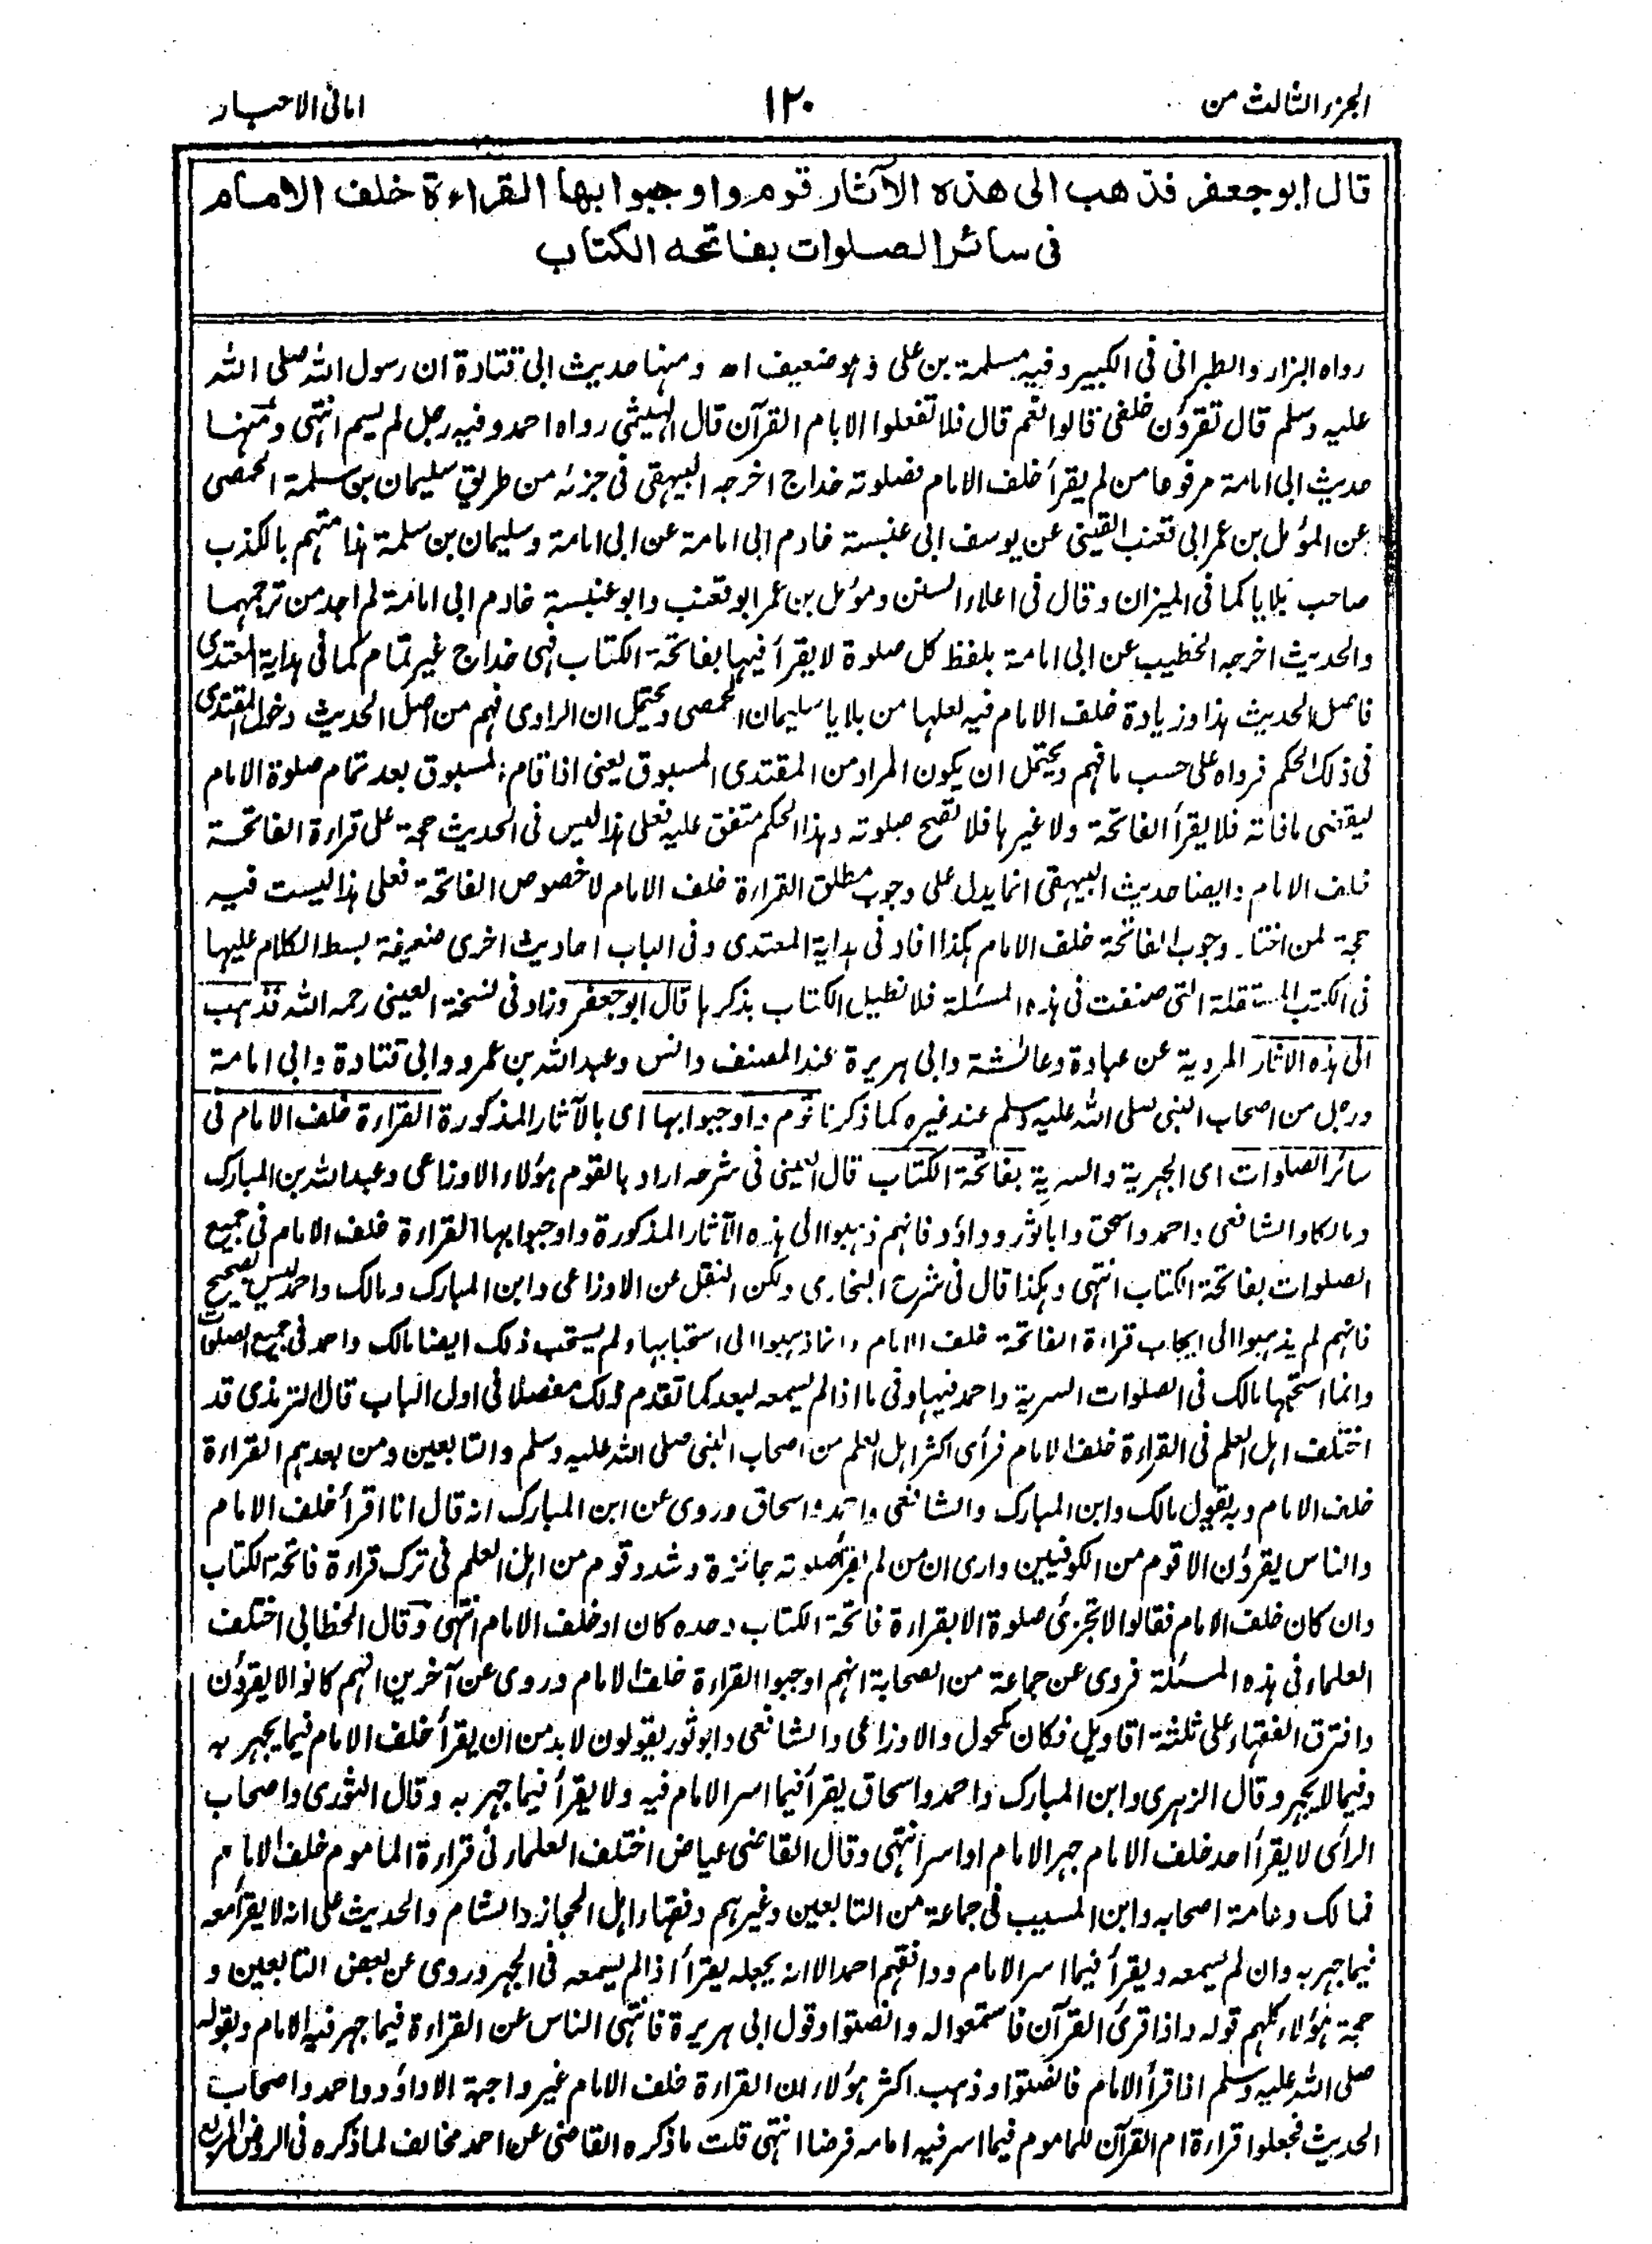 الجزء الثالث من
١٢٠
امانى الاحبار
قال ابو جعفر فذهب الى هذه الآثار قوم واوجبوا بها القراءة خلف الامام
فى سائر الصلوات بفاتحه الكتاب
رواه البزار والطبرانى فى الكبير وفيه مسلمة بن على وهو ضعيف اه ومنها حديث ابى قتادة ان رسول الله صلى الله
عليه وسلم قال تقرؤن خلفى قالوا نعم قال فلا تفعلوا الا بام القرآن قال الهيثمى رواه احمد وفيه رجل لم يسم انتهى ومنها
حديث ابى امامة مرفوعا من لم يقرأ خلف الامام فصلوته خداج اخرجه البيهقى فى جزئه من طريق سليمان بن سلمة الحمصى
عن المؤمل بن عمر ابى قعنب القينى عن يوسف ابى عنبسة خادم ابى امامة عن ابى امامة وسليمان بن سلمة هذا متهم بالكذب
صاحب بلايا كما فى الميزان وقال فى اعلاء السنن ومؤمل بن عمر ابو قعنب وابو عنبسة خادم ابى امامة لم اجد من ترجمهما
والحديث اخرجه الخطيب عن ابى امامة بلفظ كل صلوة لا يقرأ فيها بفاتحة الكتاب فهى خداج غير تمام كما فى هداية المعتدى
فاصل الحديث هذا وزيادة خلف الامام فيه لعلها من بلايا سليمان الحمصى ويحتمل ان الراوى فهم من اصل الحديث دخول المقتدى
فى ذلك الحكم فرواه على حسب ما فهم ويحتمل ان يكون المراد من المقتدى المسبوق يعنى اذا قام المسبوق بعد تمام صلوة الامام
ليقضى ما فاته فلا يقرأ الفاتحة ولا غيرها فلا تصح صلوته وهذا الحكم متفق عليه فعلى هذا ليس فى الحديث حجة على قراءة الفاتحة
خلف الامام وايضا حديث البيهقى انما يدل على وجوب مطلق القراءة خلف الامام لا خصوص الفاتحة فعلى هذا ليست فيه
حجة لمن اختار وجوب الفاتحة خلف الامام هكذا افاد فى هداية المعتدى وفى الباب احاديث اخرى ضعيفة بسط الكلام عليها
فى الكتب المستقلة التى صنفت فى هذه المسئلة فلا نطيل الكتاب بذكرها قال ابو جعفر وزاد فى نسخة العينى رحمه الله فذهب
الى هذه الاثار المروية عن عبادة وعائشة وابى هريرة عند المصنف وانس وعبد الله بن عمرو وابى قتادة وابى امامة
ورجل من اصحاب النبى صلى الله عليه وسلم عند غيره كما ذكرنا قوم واوجبوا بها اى بالآثار المذكورة القراءة خلف الامام فى
سائر الصلوات اى الجهرية والسرية بفاتحة الكتاب قال العينى فى شرحه اراد بالقوم هؤلاء الاوزاعى وعبد الله بن المبارك
ومالكا والشافعى واحمد واسحق وابا ثور وداؤد فانهم ذهبوا الى هذه الآثار المذكورة واوجبوا بها القراءة خلف الامام فى جميع
الصلوات بفاتحة الكتاب انتهى وهكذا قال فى شرح البخارى ولكن النقل عن الاوزاعى وابن المبارك ومالك واحمد ليس بصحيح
فانهم لم يذهبوا الى ايجاب قراءة الفاتحة خلف الامام وانما ذهبوا الى استحبابها ولم يستحب ذلك ايضا مالك واحمد فى جميع الصلوات
وانما استحبها مالك فى الصلوات السرية واحمد فيها وفى ما اذا لم يسمعه لبعد كما تقدم ذلك مفصلا فى اول الباب قال الترمذى قد
اختلف اهل العلم فى القراءة خلف الامام فرأى اكثر اهل العلم من اصحاب النبى صلى الله عليه وسلم والتابعين ومن بعدهم القراءة
خلف الامام وبه يقول مالك وابن المبارك والشافعى واحمد واسحاق وروى عن ابن المبارك انه قال انا اقرأ خلف الامام
والناس يقرؤن الا قوم من الكوفيين وارى ان من لم يقرأ صلوته جائزة وشدد قوم من اهل العلم فى ترك قراءة فاتحة الكتاب
وان كان خلف الامام فقالوا لا تجزئ صلوة الا بقراءة فاتحة الكتاب وحده كان او خلف الامام انتهى وقال الخطابى اختلف
العلماء فى هذه المسئلة فروى عن جماعة من الصحابة انهم اوجبوا القراءة خلف الامام وروى عن آخرين انهم كانوا لا يقرؤن
وافترق الفقهاء على ثلثة اقاويل فكان مكحول والاوزاعى والشافعى وابو ثور يقولون لا بد من ان يقرأ خلف الامام فيما يجهر به
وفيما لا يجهر وقال الزهرى وابن المبارك واحمد واسحاق يقرأ فيما اسر الامام فيه ولا يقرأ فيما جهر به وقال الثورى واصحاب
الرأى لا يقرأ احد خلف الامام جهر الامام او اسر انتهى وقال القاضى عياض اختلف العلماء فى قراءة الماموم خلف الامام
فمالك وعامة اصحابه وابن المسيب فى جماعة من التابعين وغيرهم وفقهاء اهل الحجاز والشام والحديث على انه لا يقرأ معه
فيما جهر به وان لم يسمعه ويقرأ فيما اسر الامام ووافقهم احمد الا انه يجعله يقرأ اذا لم يسمعه فى الجهر وروى عن بعض التابعين و
حجة هؤلاء كلهم قوله واذا قرئ القرآن فاستمعوا له وانصتوا وقول ابى هريرة فانتهى الناس عن القراءة فيما جهر فيه الامام وبقوله
صلى الله عليه وسلم اذا قرأ الامام فانصتوا وذهب اكثر هؤلاء ان القراءة خلف الامام غير واجبة الا داؤد واحمد واصحاب
الحديث فجعلوا قراءة ام القرآن للماموم فيما اسر فيه امامه فرضا انتهى قلت ما ذكره القاضى عن احمد مخالف لما ذكره فى الروض المربع